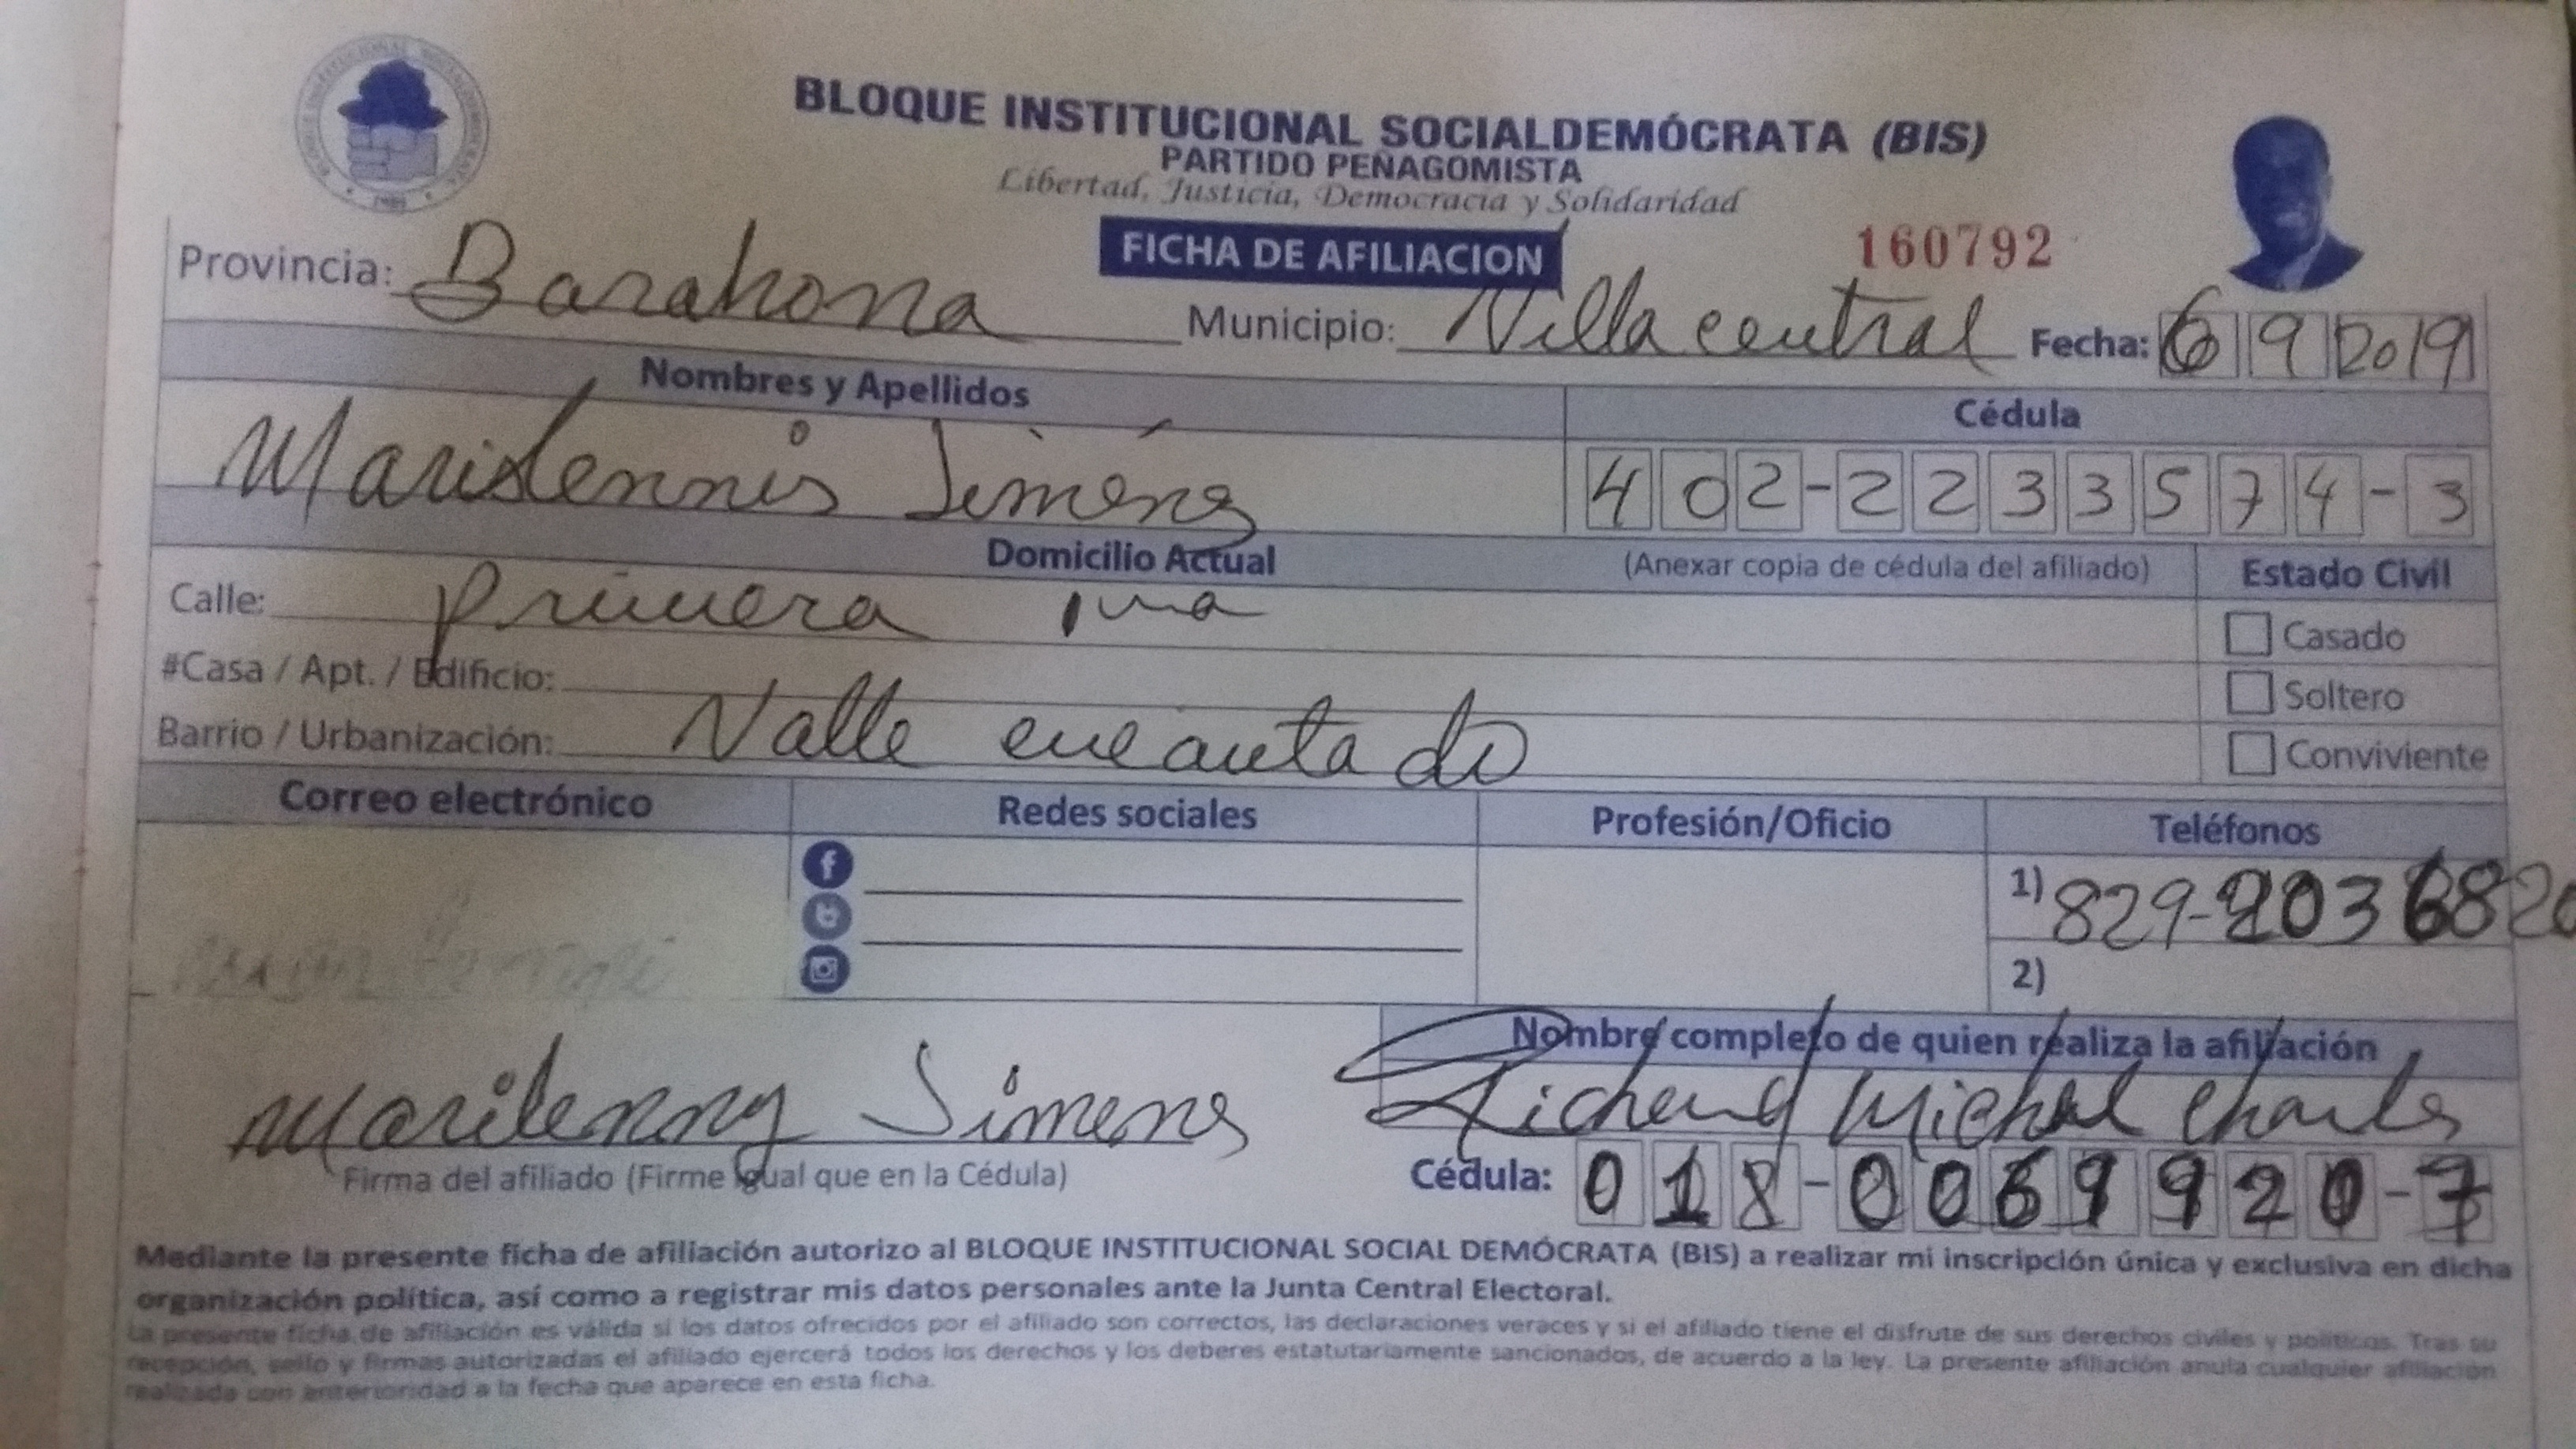 BLOQUE INSTITUCIONAL SOCIALDEMÓCRATA (BIS)
PARTIDO PEÑAGOMISTA
Libertad, Justicia, Democracia y Solidaridad
FICHA DE AFILIACION 160792
Provincia: Barahona Municipio: Villa central Fecha: 6 9 2019
Nombres y Apellidos Cédula
Marislennis Jiménes 402-2233574-3
Domicilio Actual (Anexar copia de cédula del afiliado) Estado Civil
Calle: primera Casado
#Casa / Apt. / Edificio: Soltero
Barrio / Urbanización: Valle encantado Conviviente
Correo electrónico Redes sociales Profesión/Oficio Teléfonos
1) 829-203682
2)
Nombre completo de quien realiza la afiliación
Marilenny Jimenes Richard Michel Charles
Firma del afiliado (Firme igual que en la Cédula) Cédula: 018-0069920-7
Mediante la presente ficha de afiliación autorizo al BLOQUE INSTITUCIONAL SOCIAL DEMÓCRATA (BIS) a realizar mi inscripción única y exclusiva en dicha
organización política, así como a registrar mis datos personales ante la Junta Central Electoral.
La presente ficha de afiliación es válida si los datos ofrecidos por el afiliado son correctos, las declaraciones veraces y si el afiliado tiene el disfrute de sus derechos civiles y políticos. Tras su
recepción, sello y firmas autorizadas el afiliado ejercerá todos los derechos y los deberes estatutariamente sancionados, de acuerdo a la ley. La presente afiliación anula cualquier afiliación
realizada con anterioridad a la fecha que aparece en esta ficha.